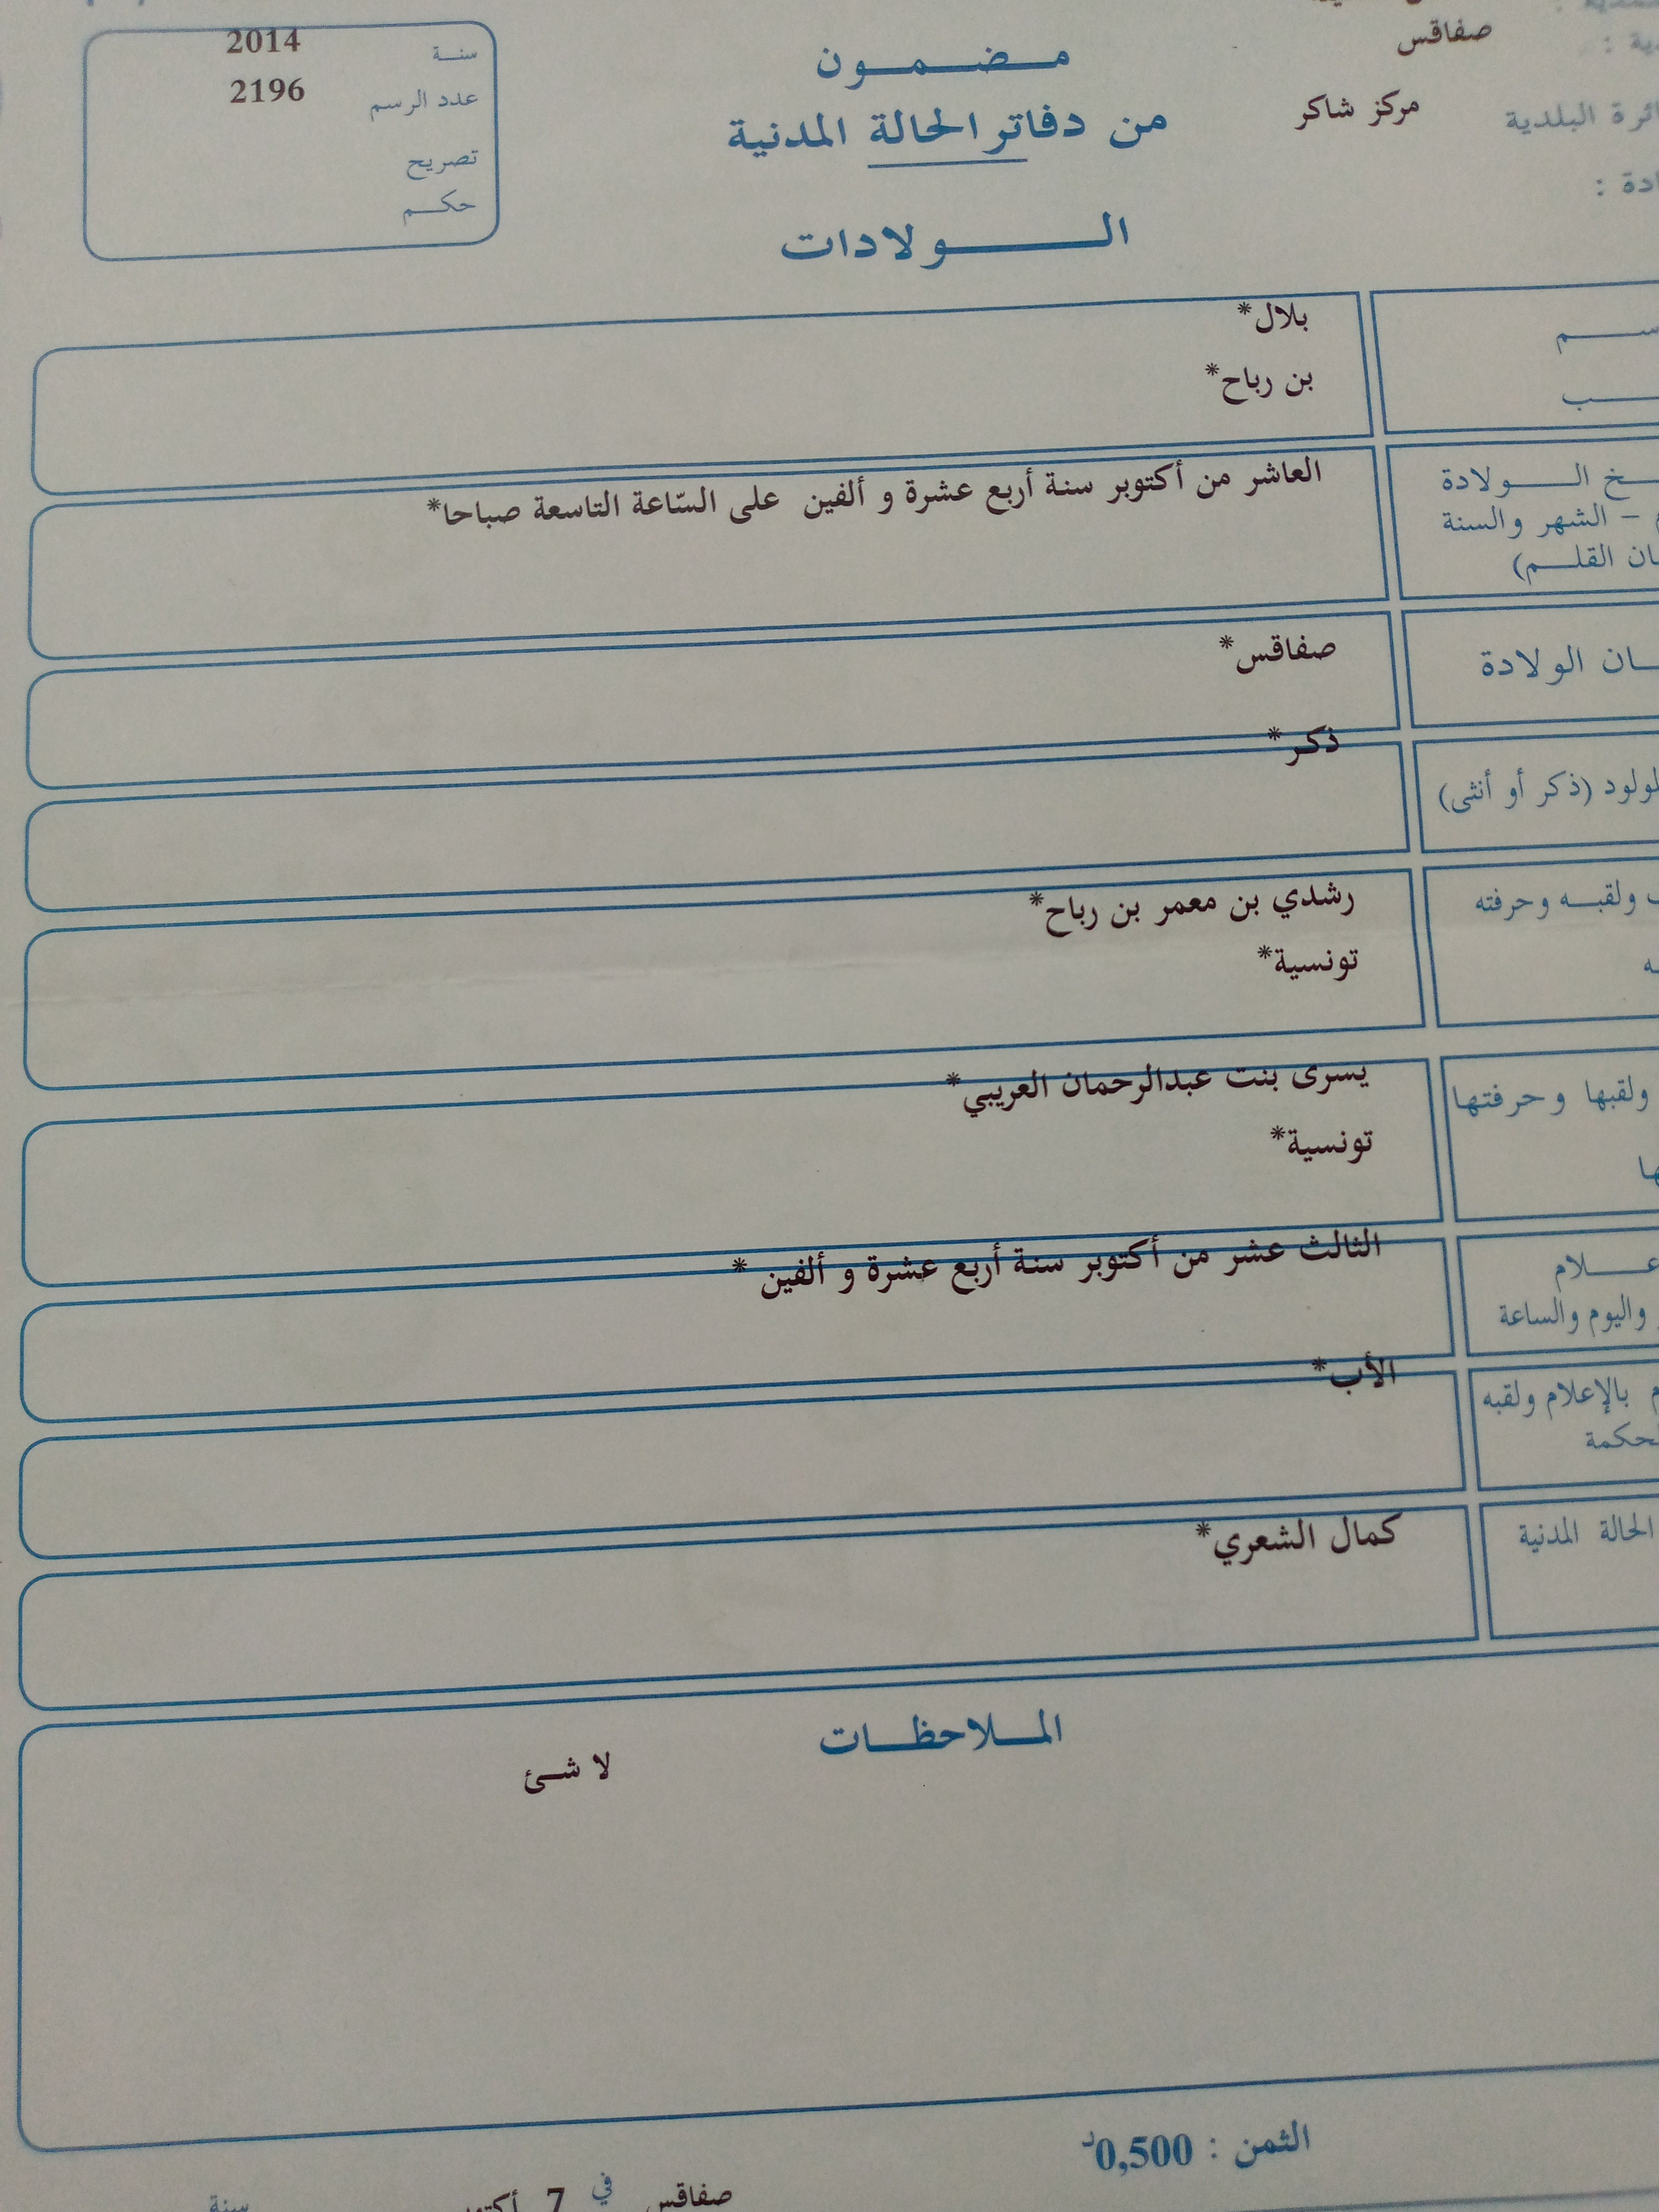 صفاقس
مركز شاكر
البلدية
مضمون
من دفاتر الحالة المدنية
الولادات
سنة 2014
عدد الرسم 2196
تصريح
حكم
بلال*
بن رباح*
الولادة
العاشر من أكتوبر سنة أربع عشرة و ألفين على السّاعة التاسعة صباحا*
– الشهر والسنة
القلم)
الولادة صفاقس*
(ذكر أو أنثى) ذكر*
ولقبه وحرفته رشدي بن معمر بن رباح*
تونسية*
ولقبها وحرفتها يسرى بنت عبدالرحمان العريبي*
تونسية*
الثالث عشر من أكتوبر سنة أربع عشرة و ألفين *
واليوم والساعة
الأب*
بالإعلام ولقبه
الحالة المدنية كمال الشعري*
الملاحظات
لا شئ
الثمن : 0,500د
صفاقس في 7 سنة